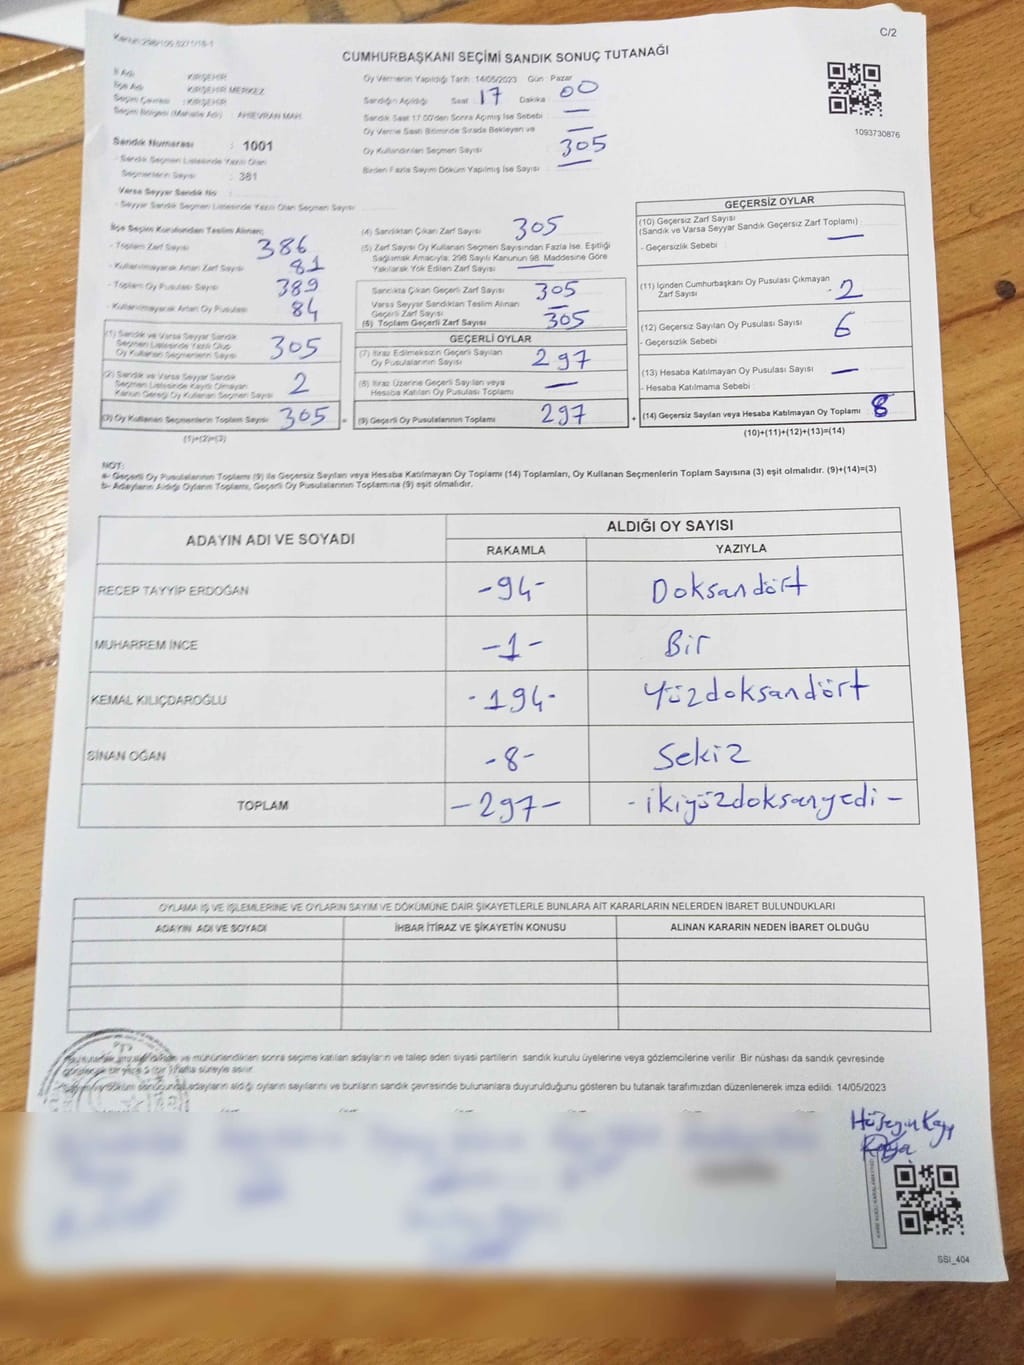 C/2
CUMHURBAŞKANI SEÇİMİ SANDIK SONUÇ TUTANAĞI
İl Adı : KIRŞEHİR
İlçe Adı : KIRŞEHİR MERKEZ
Seçim Çevresi : KIRŞEHİR
Seçim Bölgesi (Mahalle Adı) : AHİEVRAN MAH.
Sandık Numarası : 1001
- Sandık Seçmen Listesinde Yazılı Olan
Seçmenlerin Sayısı : 381
Varsa Seyyar Sandık No :
- Seyyar Sandık Seçmen Listesinde Yazılı Olan Seçmen Sayısı :
Oy Vermenin Yapıldığı Tarih : 14/05/2023 Gün : Pazar
Sandığın Açıldığı Saat : 17 Dakika : 00
Sandık Saat 17.00'den Sonra Açılmış İse Sebebi : —
Oy Verme Saati Bitiminde Sırada Bekleyen ve
Oy Kullandırılan Seçmen Sayısı : — 305
Birden Fazla Sayım Döküm Yapılmış İse Sayısı : —
1093730876
İlçe Seçim Kurulundan Teslim Alınan;
- Toplam Zarf Sayısı : 386
- Kullanılmayarak Artan Zarf Sayısı : 81
- Toplam Oy Pusulası Sayısı : 389
- Kullanılmayarak Artan Oy Pusulası : 84
(1) Sandık ve Varsa Seyyar Sandık
Seçmen Listesinde Yazılı Olup
Oy Kullanan Seçmenlerin Sayısı : 305
(2) Sandık ve Varsa Seyyar Sandık
Seçmen Listesinde Kayıtlı Olmayan
Kanun Gereği Oy Kullanan Seçmen Sayısı : 2
(3) Oy Kullanan Seçmenlerin Toplam Sayısı : 305 =
(1)+(2)=(3)
(4) Sandıktan Çıkan Zarf Sayısı : 305
(5) Zarf Sayısı Oy Kullanan Seçmen Sayısından Fazla İse, Eşitliği
Sağlamak Amacıyla, 298 Sayılı Kanunun 98. Maddesine Göre
Yakılarak Yok Edilen Zarf Sayısı : —
Sandıkta Çıkan Geçerli Zarf Sayısı : 305
Varsa Seyyar Sandıktan Teslim Alınan
Geçerli Zarf Sayısı : —
(6) Toplam Geçerli Zarf Sayısı : 305
GEÇERLİ OYLAR
(7) İtiraz Edilmeksizin Geçerli Sayılan
Oy Pusulalarının Sayısı : 297
(8) İtiraz Üzerine Geçerli Sayılan veya
Hesaba Katılan Oy Pusulaları Toplamı : —
(9) Geçerli Oy Pusulalarının Toplamı : 297 +
GEÇERSİZ OYLAR
(10) Geçersiz Zarf Sayısı
(Sandık ve Varsa Seyyar Sandık Geçersiz Zarf Toplamı) : —
- Geçersizlik Sebebi :
(11) İçinden Cumhurbaşkanı Oy Pusulası Çıkmayan
Zarf Sayısı : 2
(12) Geçersiz Sayılan Oy Pusulası Sayısı : 6
- Geçersizlik Sebebi :
(13) Hesaba Katılmayan Oy Pusulası Sayısı : —
- Hesaba Katılmama Sebebi :
(14) Geçersiz Sayılan veya Hesaba Katılmayan Oy Toplamı : 8
(10)+(11)+(12)+(13)=(14)
NOT:
a- Geçerli Oy Pusulalarının Toplamı (9) ile Geçersiz Sayılan veya Hesaba Katılmayan Oy Toplamı (14) Toplamları, Oy Kullanan Seçmenlerin Toplam Sayısına (3) eşit olmalıdır. (9)+(14)=(3)
b- Adayların Aldığı Oyların Toplamı, Geçerli Oy Pusulalarının Toplamına (9) eşit olmalıdır.
ADAYIN ADI VE SOYADI
ALDIĞI OY SAYISI
RAKAMLA YAZIYLA
RECEP TAYYİP ERDOĞAN -94- Doksandört
MUHARREM İNCE -1- Bir
KEMAL KILIÇDAROĞLU -194- Yüzdoksandört
SİNAN OĞAN -8- Sekiz
TOPLAM -297- -ikiyüzdoksanyedi-
OYLAMA İŞ VE İŞLEMLERİNE VE OYLARIN SAYIM VE DÖKÜMÜNE DAİR ŞİKAYETLERLE BUNLARA AİT KARARLARIN NELERDEN İBARET BULUNDUKLARI
ADAYIN ADI VE SOYADI İHBAR İTİRAZ VE ŞİKAYETİN KONUSU ALINAN KARARIN NEDEN İBARET OLDUĞU
ve mühürlendikten sonra seçime katılan adayların ve talep eden siyasi partilerin sandık kurulu üyelerine veya gözlemcilerine verilir. Bir nüshası da sandık çevresinde
hafta süreyle asılır.
adayların aldığı oyların sayılarını ve bunların sandık çevresinde bulunanlara duyurulduğunu gösteren bu tutanak tarafımızdan düzenlenerek imza edildi. 14/05/2023
Hüseyin Kaya
SSI_404